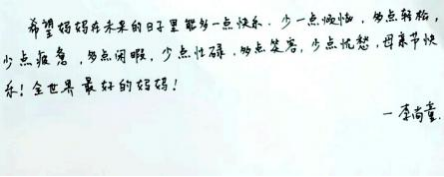 希望妈妈在未来的日子里能多一点快乐.少一点烦恼,多点轻松,
少点疲惫,多点闲暇,少点忙碌.多点笑容,少点忧愁,母亲节快
乐!全世界最好的妈妈!
—李尚童.